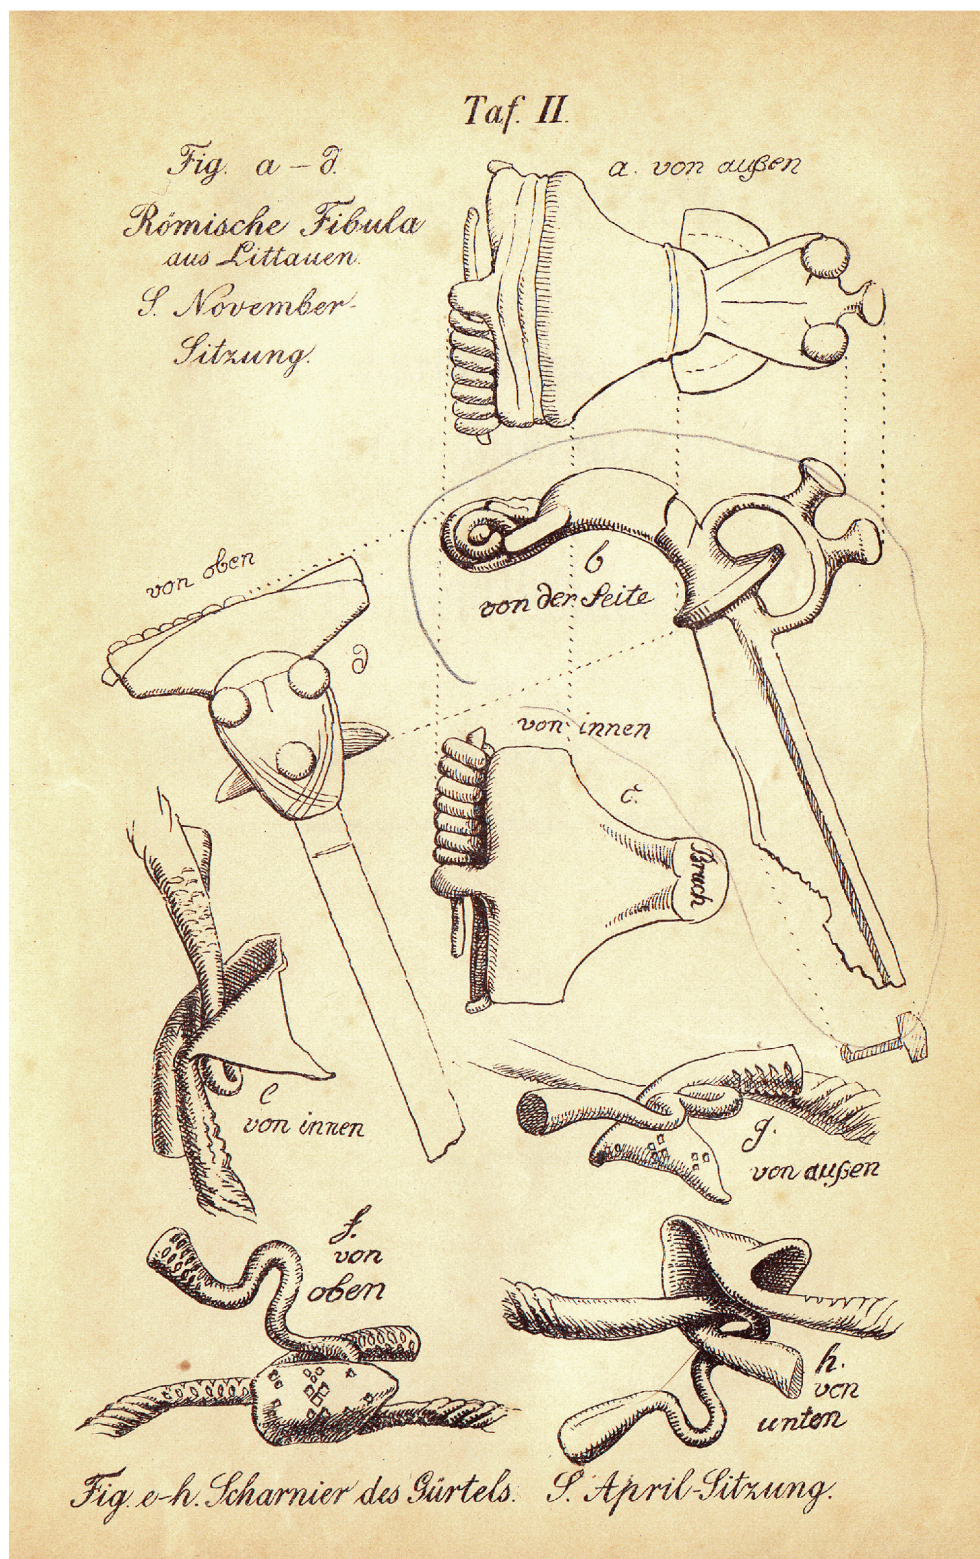 Taf. II.
Fig. a – d.
Römische Fibula
aus Littauen.
S. November-
Sitzung.
a. von außen
b
von der Seite
von oben
d
von innen
c.
Bruch
e
von innen
g.
von außen
f.
von
oben
h.
von
unten
Fig. e-h. Scharnier des Gürtels. S. April-Sitzung.